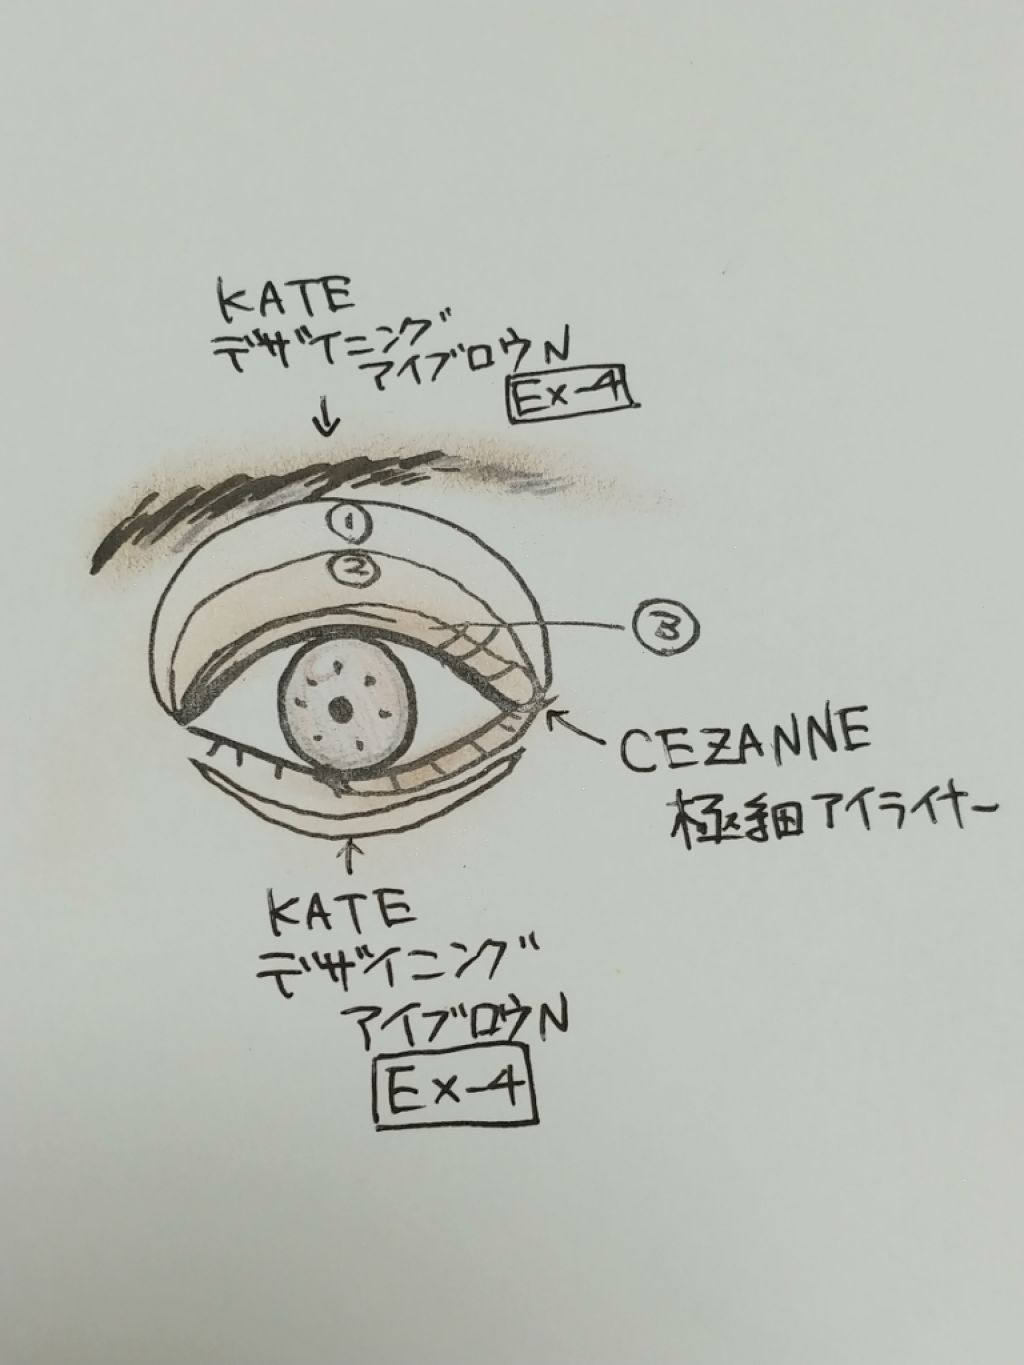 KATE
デザイニング
アイブロウN
Ex-4
①
②
③
CEZANNE
極細アイライナー
KATE
デザイニング
アイブロウN
Ex-4